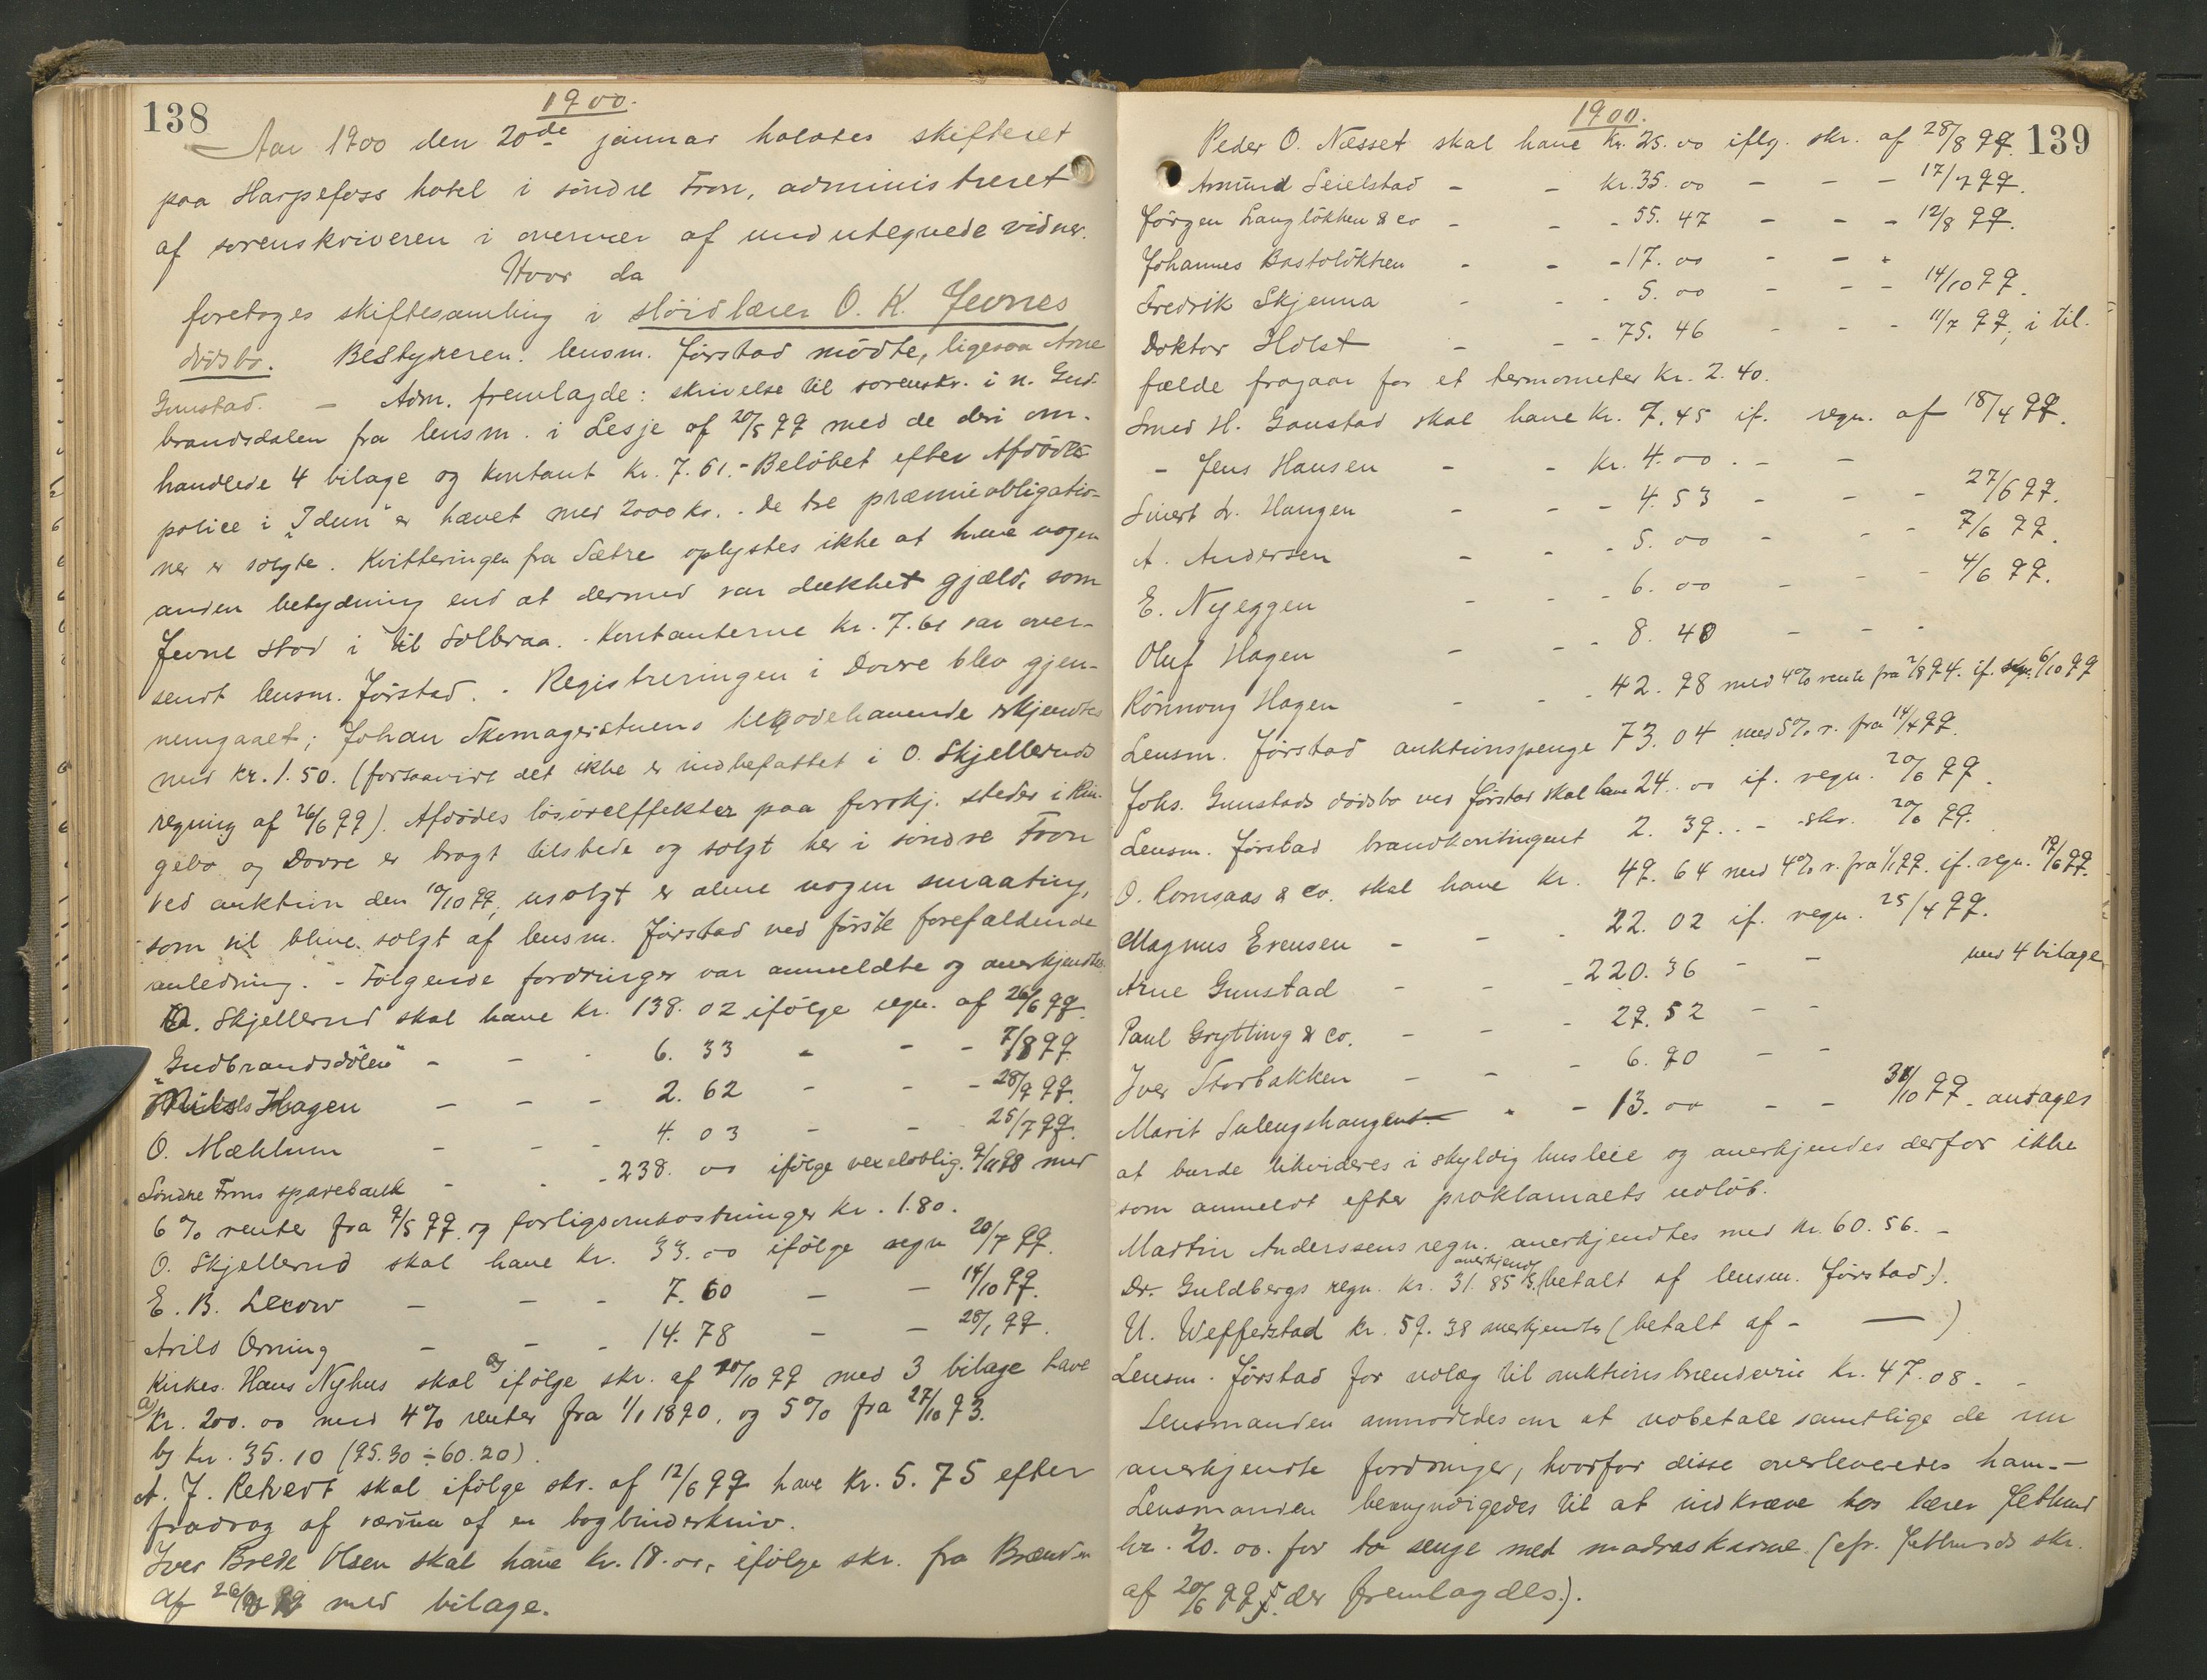 138
1900.
Aar 1900 den 20de januar holdtes skifteret
paa Harpefoss hotel i söndre Fron, administreret
af sorenskriveren i overvær af undertegnede vidner.
Hvor da
foretoges skiftesamling i sløidlærer O. K. Jevnes
dødsbo. Bestyreren lensm. Förstad mödte, ligesaa Arne
Gunstad. — Adm. fremlagde: skrivelse til sorenskr. i n. Gud-
brandsdalen fra lensm. i Lesje af 20/5 99 med de deri om-
handlede 4 bilage og kontant kr. 7.61. - Belöbet efter Afdödes
police i "Idun" er hævet med 2000 kr. - De tre præmieobligatio-
ner er solgte. Kvitteringen fra Sætre oplystes ikke at have nogen
anden betydning end at dermed var dækket gjæld, som
Jevne stod i til Solbraa. - Kontanterne kr. 7.61 var over-
sendt lensm. Förstad. - Registreringen i Dovre blev gjen-
nemgaaet; Johan Skomagerstuens tilgodehavende erkjendtes
med kr. 1.50. (forsaavidt det ikke er indbefattet i O. Skjelleruds
regning af 26/6 99). Afdödes lösöreffekter paa forskj. steder i Rin-
gebo og Dovre er bragt tilstede og solgt her i söndre Fron
ved auktion den 10/10 99, usolgt er alene nogen smaating,
som vil blive solgt af lensm. Förstad ved förste forefaldende
anledning. - Fölgende fordringer var anmeldte og anerkjendtes
O. Skjellerud skal have kr. 138.02 ifölge regn. af 26/6 99.
"Gudbrandsdölen" - - - 6.33 - - - 7/8 99
Nils Hagen - - - 2.62 - - - 28/9 99.
O. Mæhlum - - - 4.03 - - 25/7 99.
Söndre Frons sparebank - - - 238.00 ifölge vexeloblig. 9/11 98 med
6 % renter fra 9/5 99 og forligsomkostninger kr. 1.80.
O. Skjellerud skal have kr. 33.00 ifölge regn 20/7 99.
E. B. Lecow - - - 7.60 - - 14/10 99.
Arild Orning - - - 14.78 - - 28/1 99.
Kirkes. Hans Nyhus skal ifölge skr. af 20/10 99 med 3 bilage have
a) kr. 200.00 med 4% renter fra 1/1 1890, og 5% fra 27/10 93.
b) kr. 35.10 (95.30 ÷ 60.20).
A. J. Retvedt skal ifölge skr. af 12/6 99 have kr. 5.75 efter
fradrag af værdien af en bogbinderkniv.
Iver Brede Olsen skal have kr. 18.00, ifölge skr. fra Brænd
af 26/ 99 med bilage.
139
1900.
Peder O. Næsset skal have kr. 25.00 iflg. skr. af 28/8 99.
Amund Seielstad - - kr. 35.00 - - - 17/7 99.
Jörgen Langlökken & co - - - 55.47 - - - 12/8 99.
Johannes Bastolökken - - - 17.00 - - -
Fredrik Skjenna - - - 5.00 - - - 14/10 99.
Doktor Holst - - - 75.46 - - - 11/7 99, i til-
fælde fragaar for et termometer kr. 2.40.
Smed H. Gaustad skal have kr. 9.45 if. regn. af 18/4 99.
- Jens Hansen - - kr. 4.00 - -
Sivert Hr. Haugen - - - 4.53 - - - 27/6 99.
A. Andersen - - - 5.00 - - - 7/6 99.
E. Nyeggen - - - 6.00 - - - 4/6 99.
Oluf Hagen - - - 8.40 - - -
Rönnoug Hagen - - - 42.98 med 4% rente fra 2/8 94. if. 6/10 99
Lensm. Förstad auktionspenge 73.04 med 5% r. fra 14/4 99.
Johs. Gunstads dödsbo ved Förstad skal have 24.00 if. regn. 20/6 99.
Lensm. Förstad brandkontingent 2.39. - - skr. 20/6 99.
O. Romsaas & co. skal have kr. 49.64 med 4% r. fra 1/1 99. if. regn. 19/6 99.
Magnus Evensen - - - 22.02 if. regn. 25/4 99.
Arne Gunstad - - - 220.36 - - med 4 bilage
Paul Grytting & co. - - - 29.52 - -
Iver Storbakken - - - 6.90 - -
Marit Sulengshaugen - - 13.00 - - 31/10 99. antages
at burde likvideres i skyldig husleie og anerkjendes derfor ikke
som anmeldt efter proklamaets udlöb.
Martin Anderssens regn. anerkjendtes med kr. 60.56. -
Dr. Guldbergs regn. kr. 31.85 anerkjendtes (betalt af lensm. Förstad).
U. Wefferstad kr. 59.38 anerkjendtes (betalt af - — )
Lensm. Förstad for udlæg til auktionsbrændevin kr. 47.08. -
Lensmanden anmodedes om at udbetale samtlige de nu
anerkjendte fordringer, hvorfor disse overleveredes ham. -
Lensmanden bemyndigedes til at indkræve hos lærer Jetlund
kr. 20.00. for to senge med madraskarme (cfr. Jetlunds skr.
af 20/6 99, der fremlagdes).